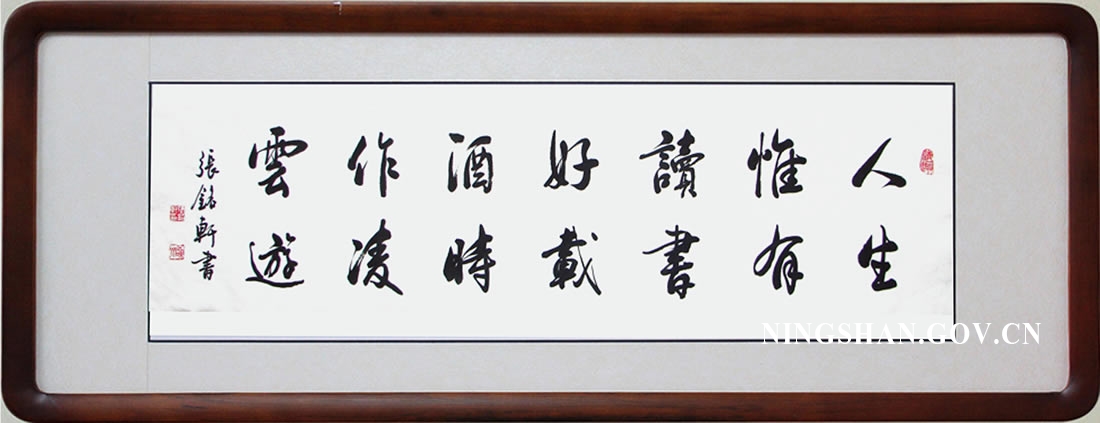 人生
惟有
讀書
好載
酒時
作凌
雲遊
張銘軒書
NINGSHAN.GOV.CN